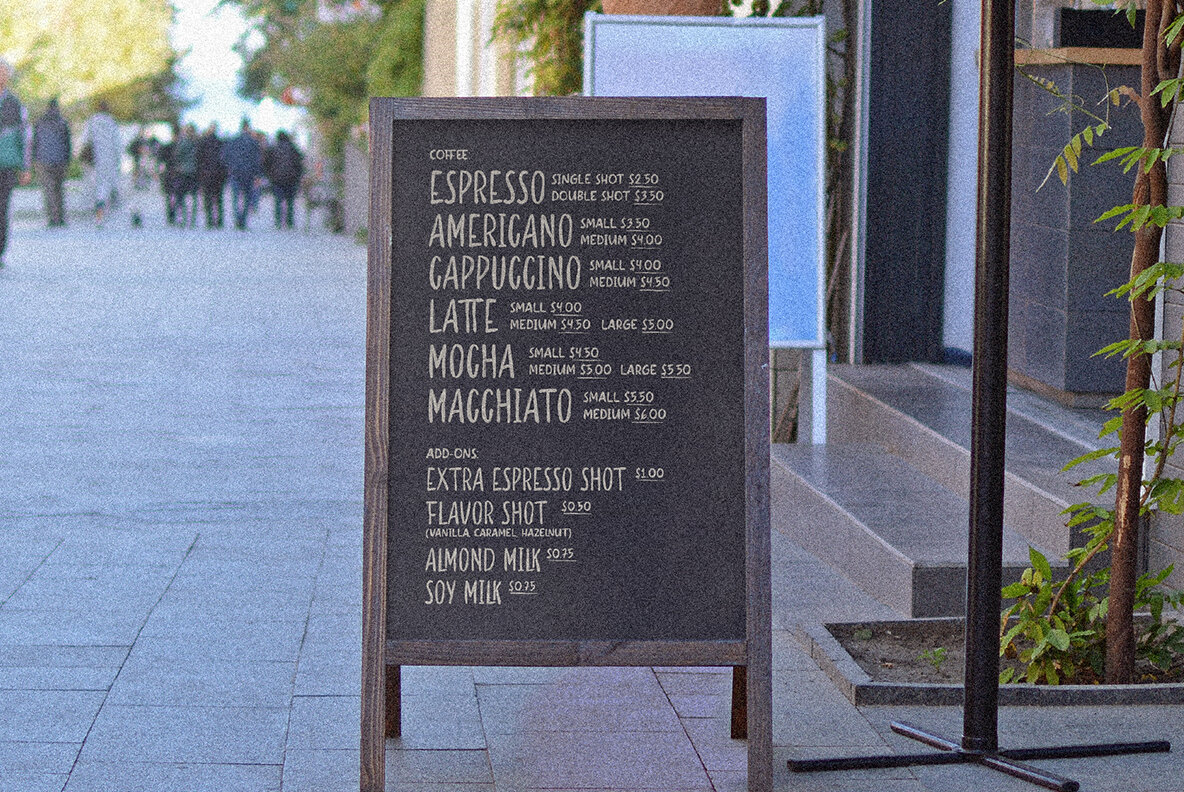 COFFEE
ESPRESSO SINGLE SHOT $2.50
DOUBLE SHOT $3.50
AMERICANO SMALL $3.50
MEDIUM $4.00
CAPPUCCINO SMALL $4.00
MEDIUM $4.50
LATTE SMALL $4.00
MEDIUM $4.50 LARGE $5.00
MOCHA SMALL $4.50
MEDIUM $5.00 LARGE $5.50
MACCHIATO SMALL $5.50
MEDIUM $6.00
ADD-ONS:
EXTRA ESPRESSO SHOT $1.00
FLAVOR SHOT $0.50
(VANILLA CARAMEL HAZELNUT)
ALMOND MILK $0.75
SOY MILK $0.75